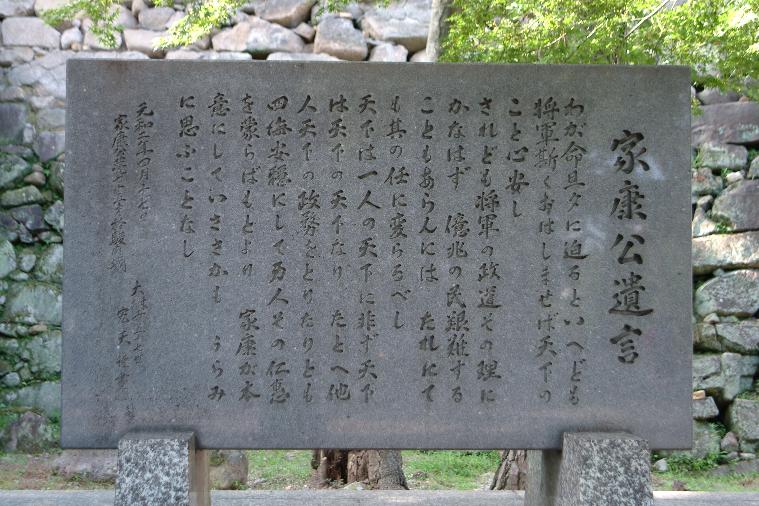 家康公遺言
わが命旦夕に迫るといへども
将軍斯くおはしませば天下の
こと心安し
されども将軍の政道その理に
かなはず 億兆の民艱難する
こともあらんには たれにて
も其の任に変らるべし
天下は一人の天下に非ず天下
は天下の天下なり たとへ他
人天下の政務をとりたりとも
四海安穏にして万人その仁恵
を蒙らばもとより 家康が本
意にしていささかも うらみ
に思ふことなし
元和二年四月十七日
家康公